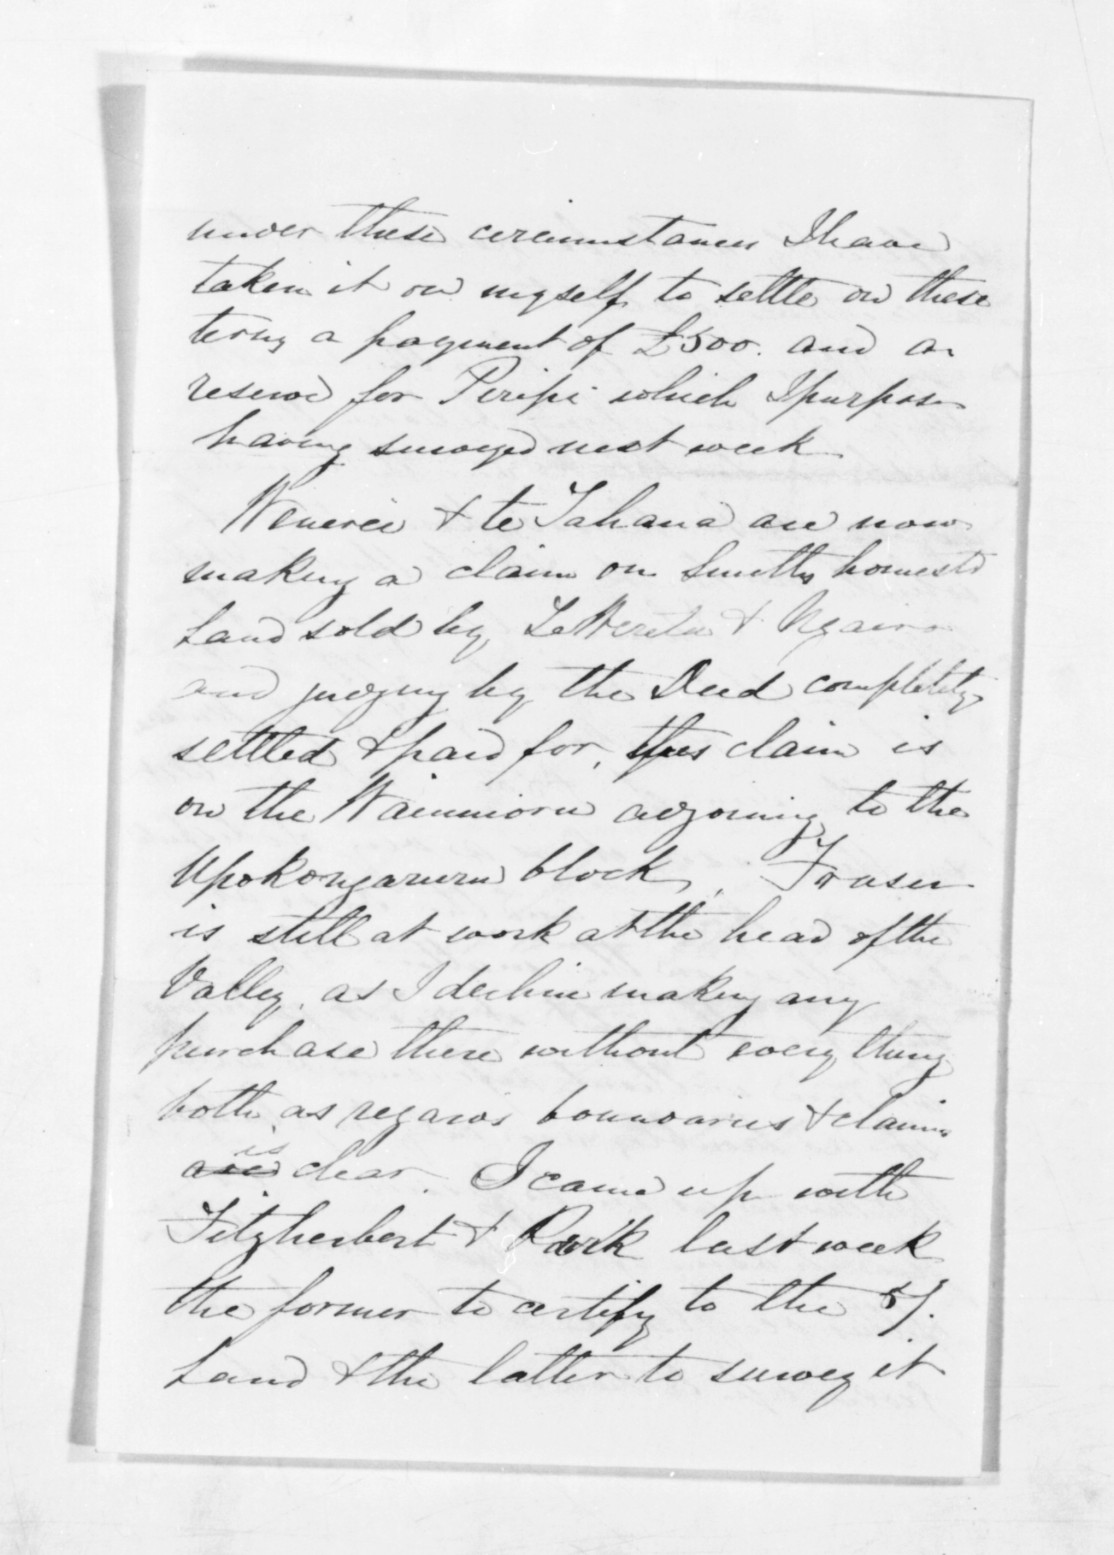 under these circumstances I have
taken it on myself to settle on these
terms a payment of £500. and a
reserve for Piripi which I purpose
having surveyed next week
Wi & te Tahana are now
making a claim on Smiths homestd
Land sold by Te Wereta & Ngairo
and judging by the Deed completely
settled & paid for, this claim is
on the Wainuioru adjoining to the
Upokongaruru block, Fraser
is still at work at the head of the
Valley, as I decline making any
purchase there without every thing
both as regards boundaries & claims
is
are clear. I came up with
Fitzherbert & Park last week
the former to certify to the 5/.
Land & the latter to survey it